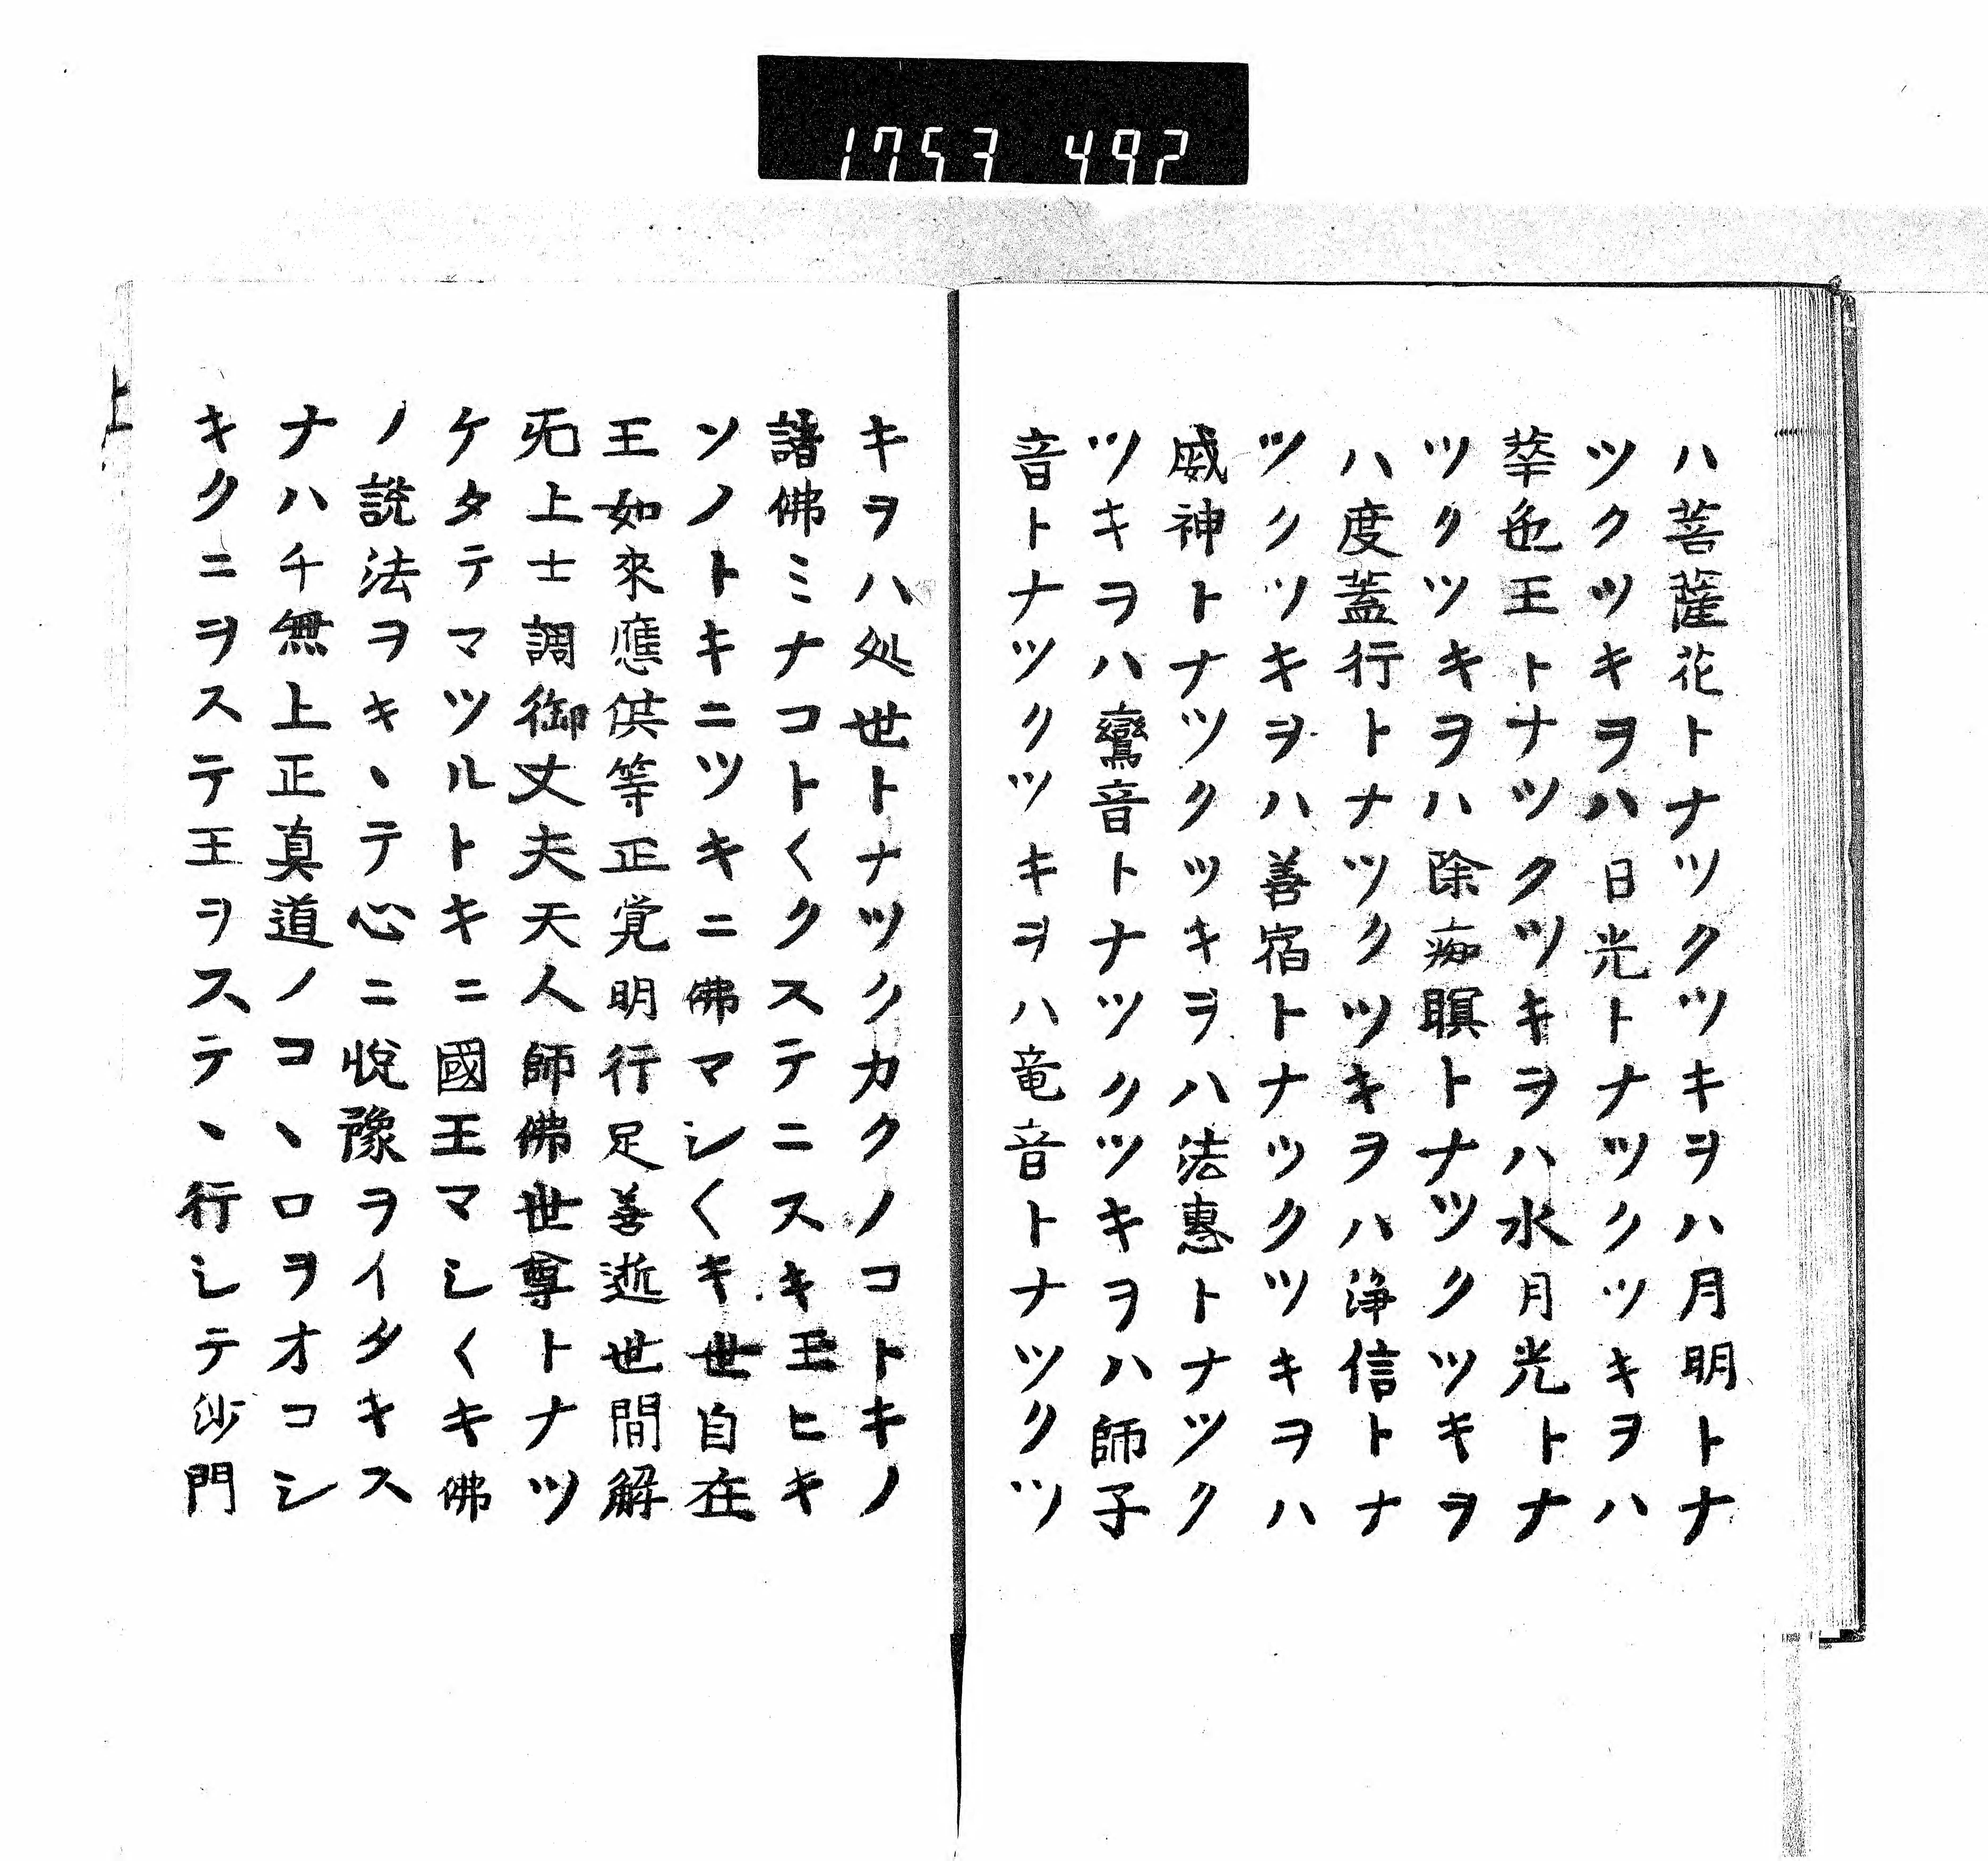 1753 492
ハ菩薩花トナツクツキヲハ月明トナ
ツクツキヲハ日光トナツクツキヲハ
華色王トナツクツキヲハ水月光トナ
ツクツキヲハ除痴瞑トナツクツキヲ
ハ度蓋行トナツクツキヲハ浄信トナ
ツクツキヲハ善宿トナツクツキヲハ
威神トナツクツキヲハ法惠トナツク
ツキヲハ鸞音トナツクツキヲハ師子
音トナツクツキヲハ竜音トナツクツ
キヲハ処世トナツクカクノコトキノ
諸佛ミナコト〱クステニスキ王ヒキ
ソノトキニツキニ佛マシ〱キ世自在
王如來應供等正覚明行足善逝世間解
旡上士調御丈夫天人師佛世尊トナツ
ケタテマツルトキニ國王マシ〱キ佛
ノ説法ヲキヽテ心ニ悅豫ヲイタキス
ナハチ無上正真道ノコヽロヲオコシ
キクニヲステ王ヲステヽ行シテ沙門
上